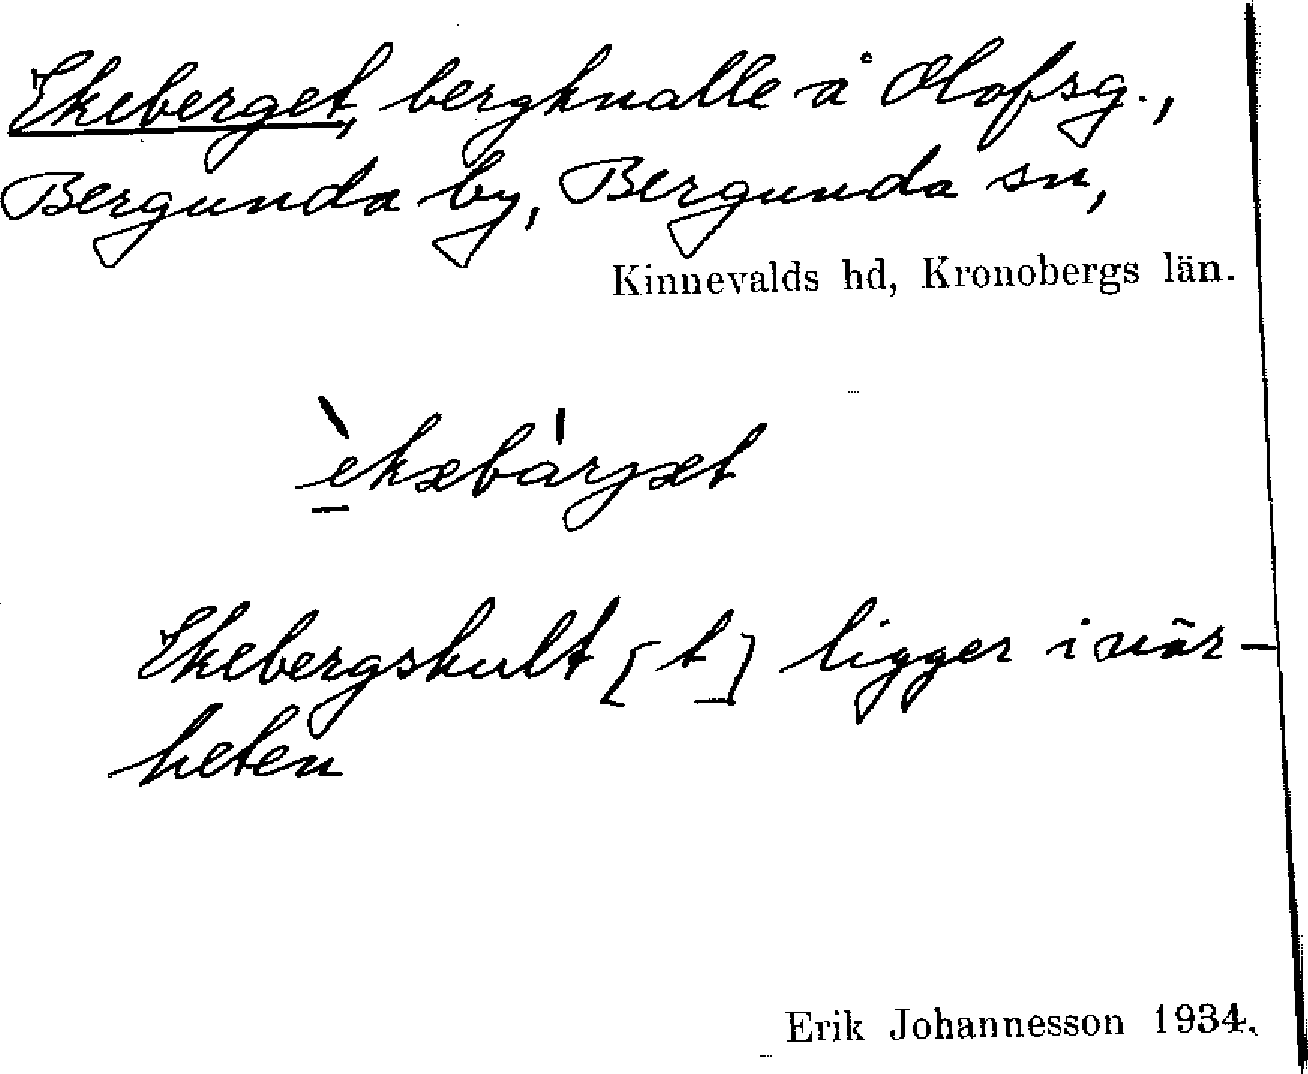 Ekeberget, bergknalle å Olofsg.,
Bergunda by, Bergunda sn,
Kinnevalds hd, Kronobergs län.
èkæbárgæt
Ekebergskult [t] ligger i när-
heten
Erik Johannesson 1934.